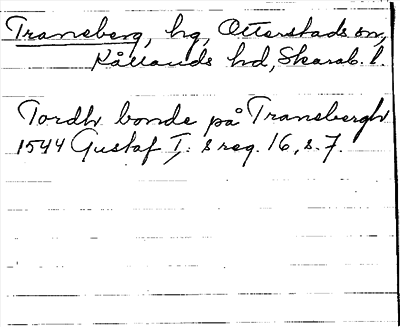 Transberg, hg, Otterstads sn,
Kållands hd, Skarab. l.
Tordh bonde på Transbergh
1544 Gustaf I: s reg. 16, s. 7.